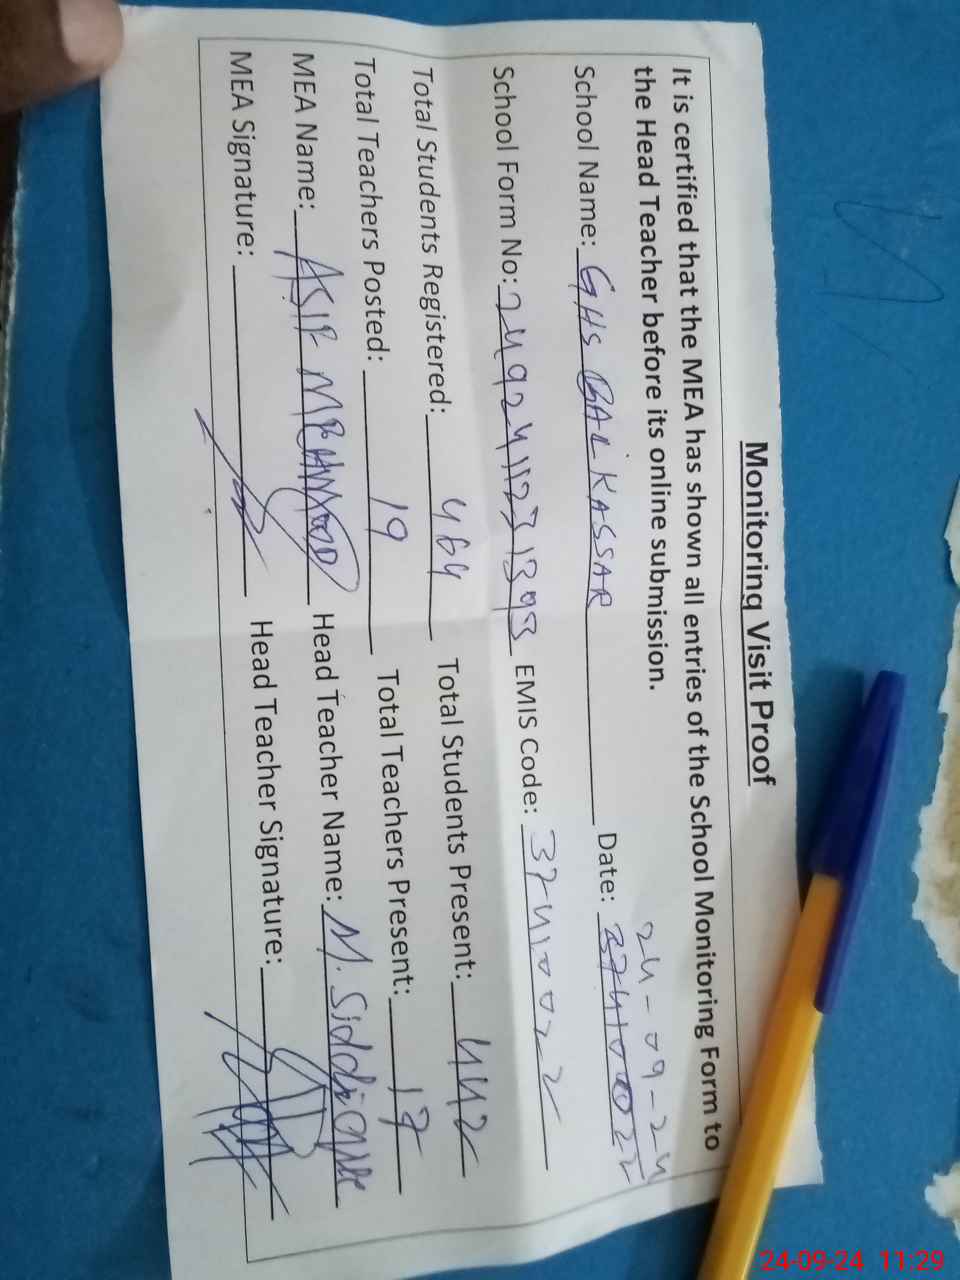 Monitoring Visit Proof
It is certified that the MEA has shown all entries of the School Monitoring Form to
the Head Teacher before its online submission.
24-09-24
School Name: GHS BALKASSAR Date: 37410022
School Form No: EMIS Code: 37410022
Total Students Registered: 464 Total Students Present: 442
Total Teachers Posted: 19 Total Teachers Present: 17
MEA Name: ASIF MEHMOOD Head Teacher Name: M. Siddique
MEA Signature: Head Teacher Signature:
24-09-24 11:29